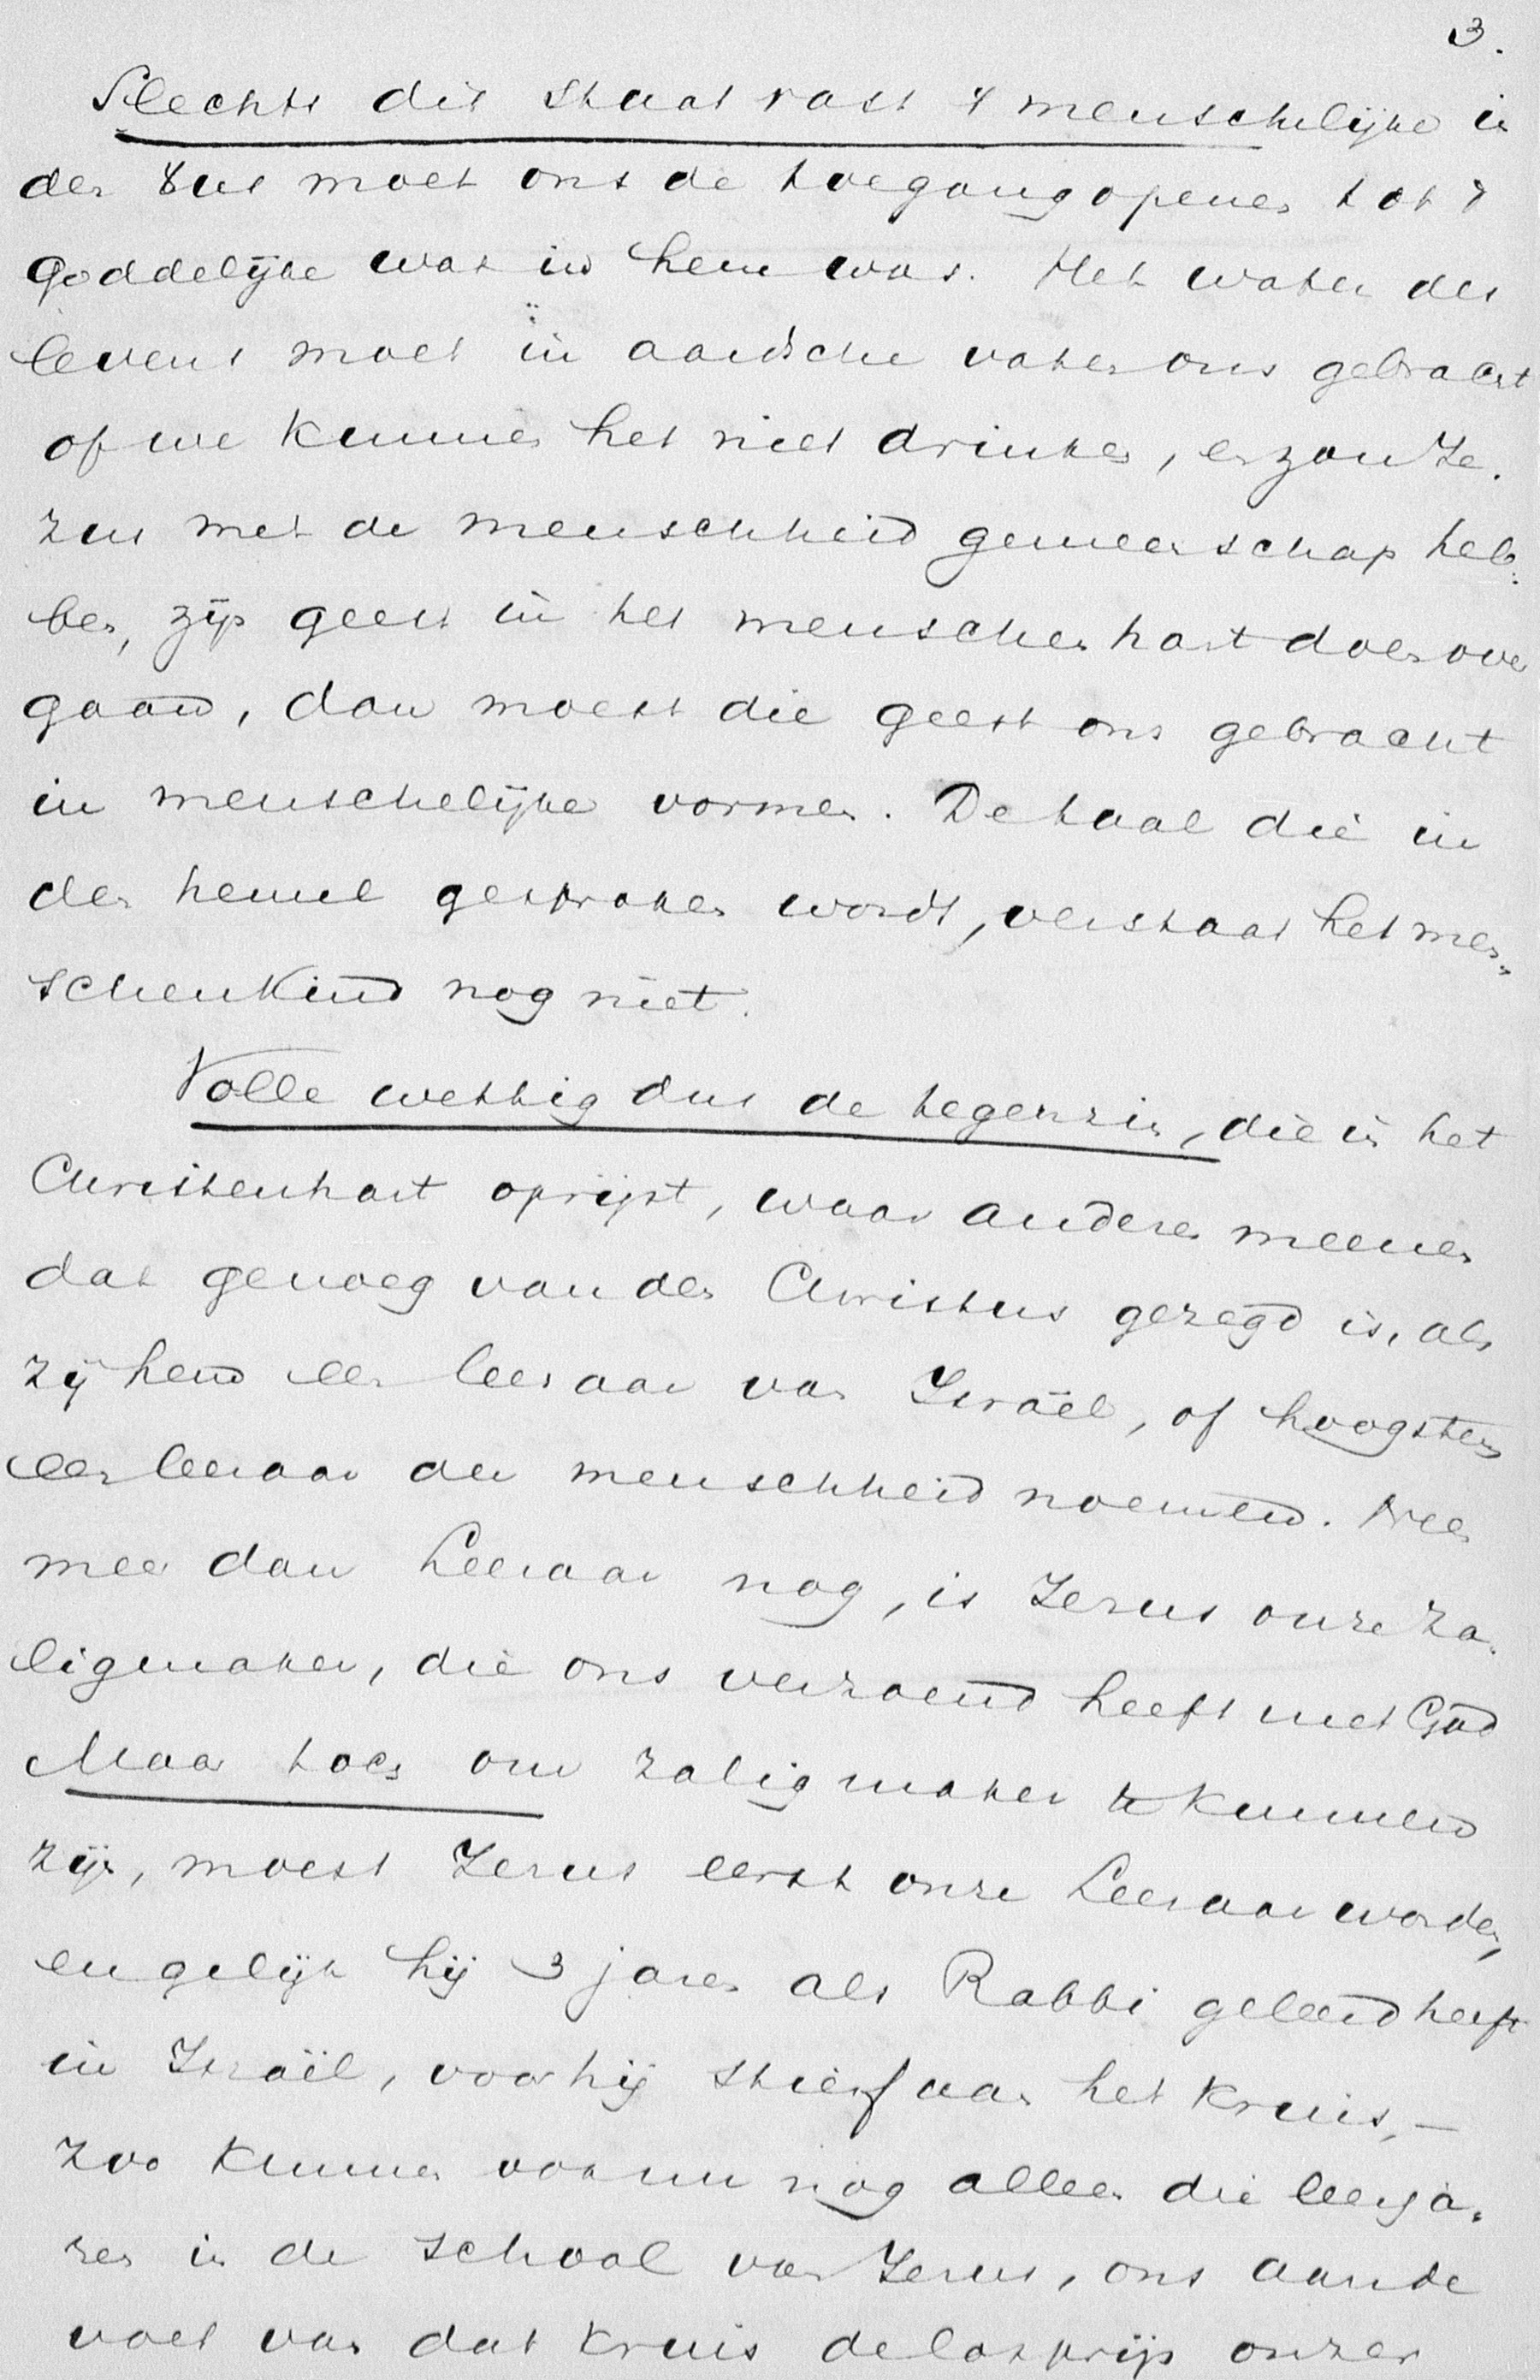 3.
Slechts dit staat vast 't menschelijke in
den Zoon moet ons de toegang openen tot 't
Goddelijke wat in hem was. Het water des
levens moet in aardsche vaten ons gebracht
of we kunnen het niet drinken, en zou Je-
zus met de menschheid gemeenschap heb-
ben, zijn geest in het menschenhart doen over
gaan, dan moest die geest ons gebracht
in menschelijke vormen. De taal die in
den hemel gesproken wordt, verstaat het men-
schenkind nog niet.
Volle wettig dus de tegenzin, die in het
Christenhart oprijst, waar anderen meenen
dat genoeg van den Christus gezegd is, als
zij hem een leeraar van Israël, of hoogstens
een leeraar der menschheid noemen. Neen
meer dan Leeraar nog, is Jezus onze Za-
ligmaker, die ons verzoend heeft met God
Maar toch om zaligmaker te kunnen
zijn, moest Jezus eerst onze Leeraar worden,
en gelijk hij 3 jaren als Rabbi geleerd heeft
in Israël, voor hij stierf aan het kruis, –
zoo kunnen ook nu nog alleen die leerja-
ren in de school van Jezus, ons aan de
voet van dat kruis de losprijs onzer